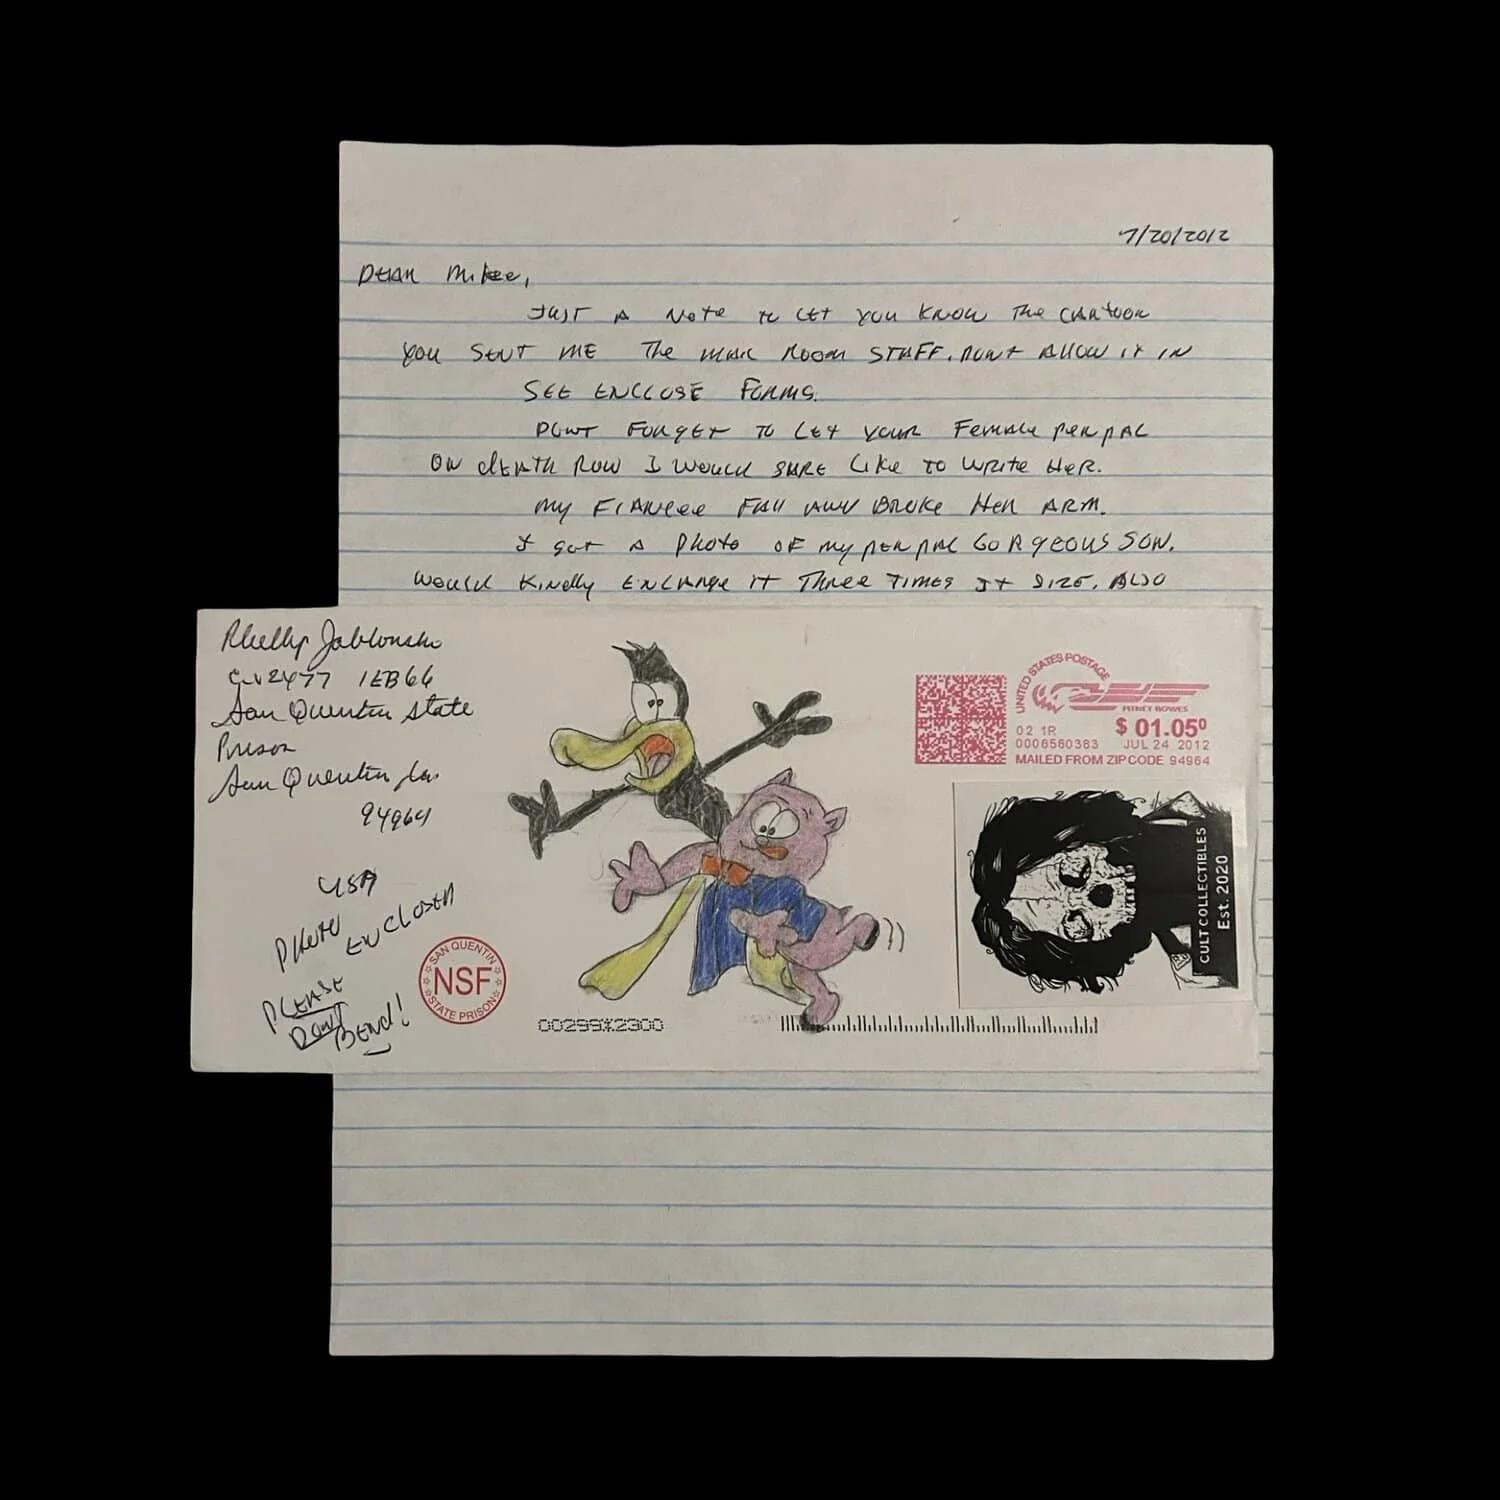 7/20/2012
Dear Mikee,
Just A Note to Let you know The cartoon
you sent me The mail Room STAFF. Dont Allow it in
See Enclose Forms.
Dont Forget to Let your Female penpal
on death Row I would sure Like to write Her.
My Fiancee Fall and Broke Her Arm.
I got A photo of my penpal Gorgeous Son.
Would Kindly Enlarge it Three Times It Size. Also
Phillip Jablonski
C-02477 1EB66
San Quentin State
Prison
San Quentin, Ca.
94964
USA
Photo
Enclosed
Please
Dont
Bend!
SAN QUENTIN
NSF
STATE PRISON
00299%2300
UNITED STATES POSTAGE
PITNEY BOWES
02 1R
$ 01.05⁰
0006560383
JUL 24 2012
MAILED FROM ZIP CODE 94964
CULT COLLECTIBLES
Est. 2020